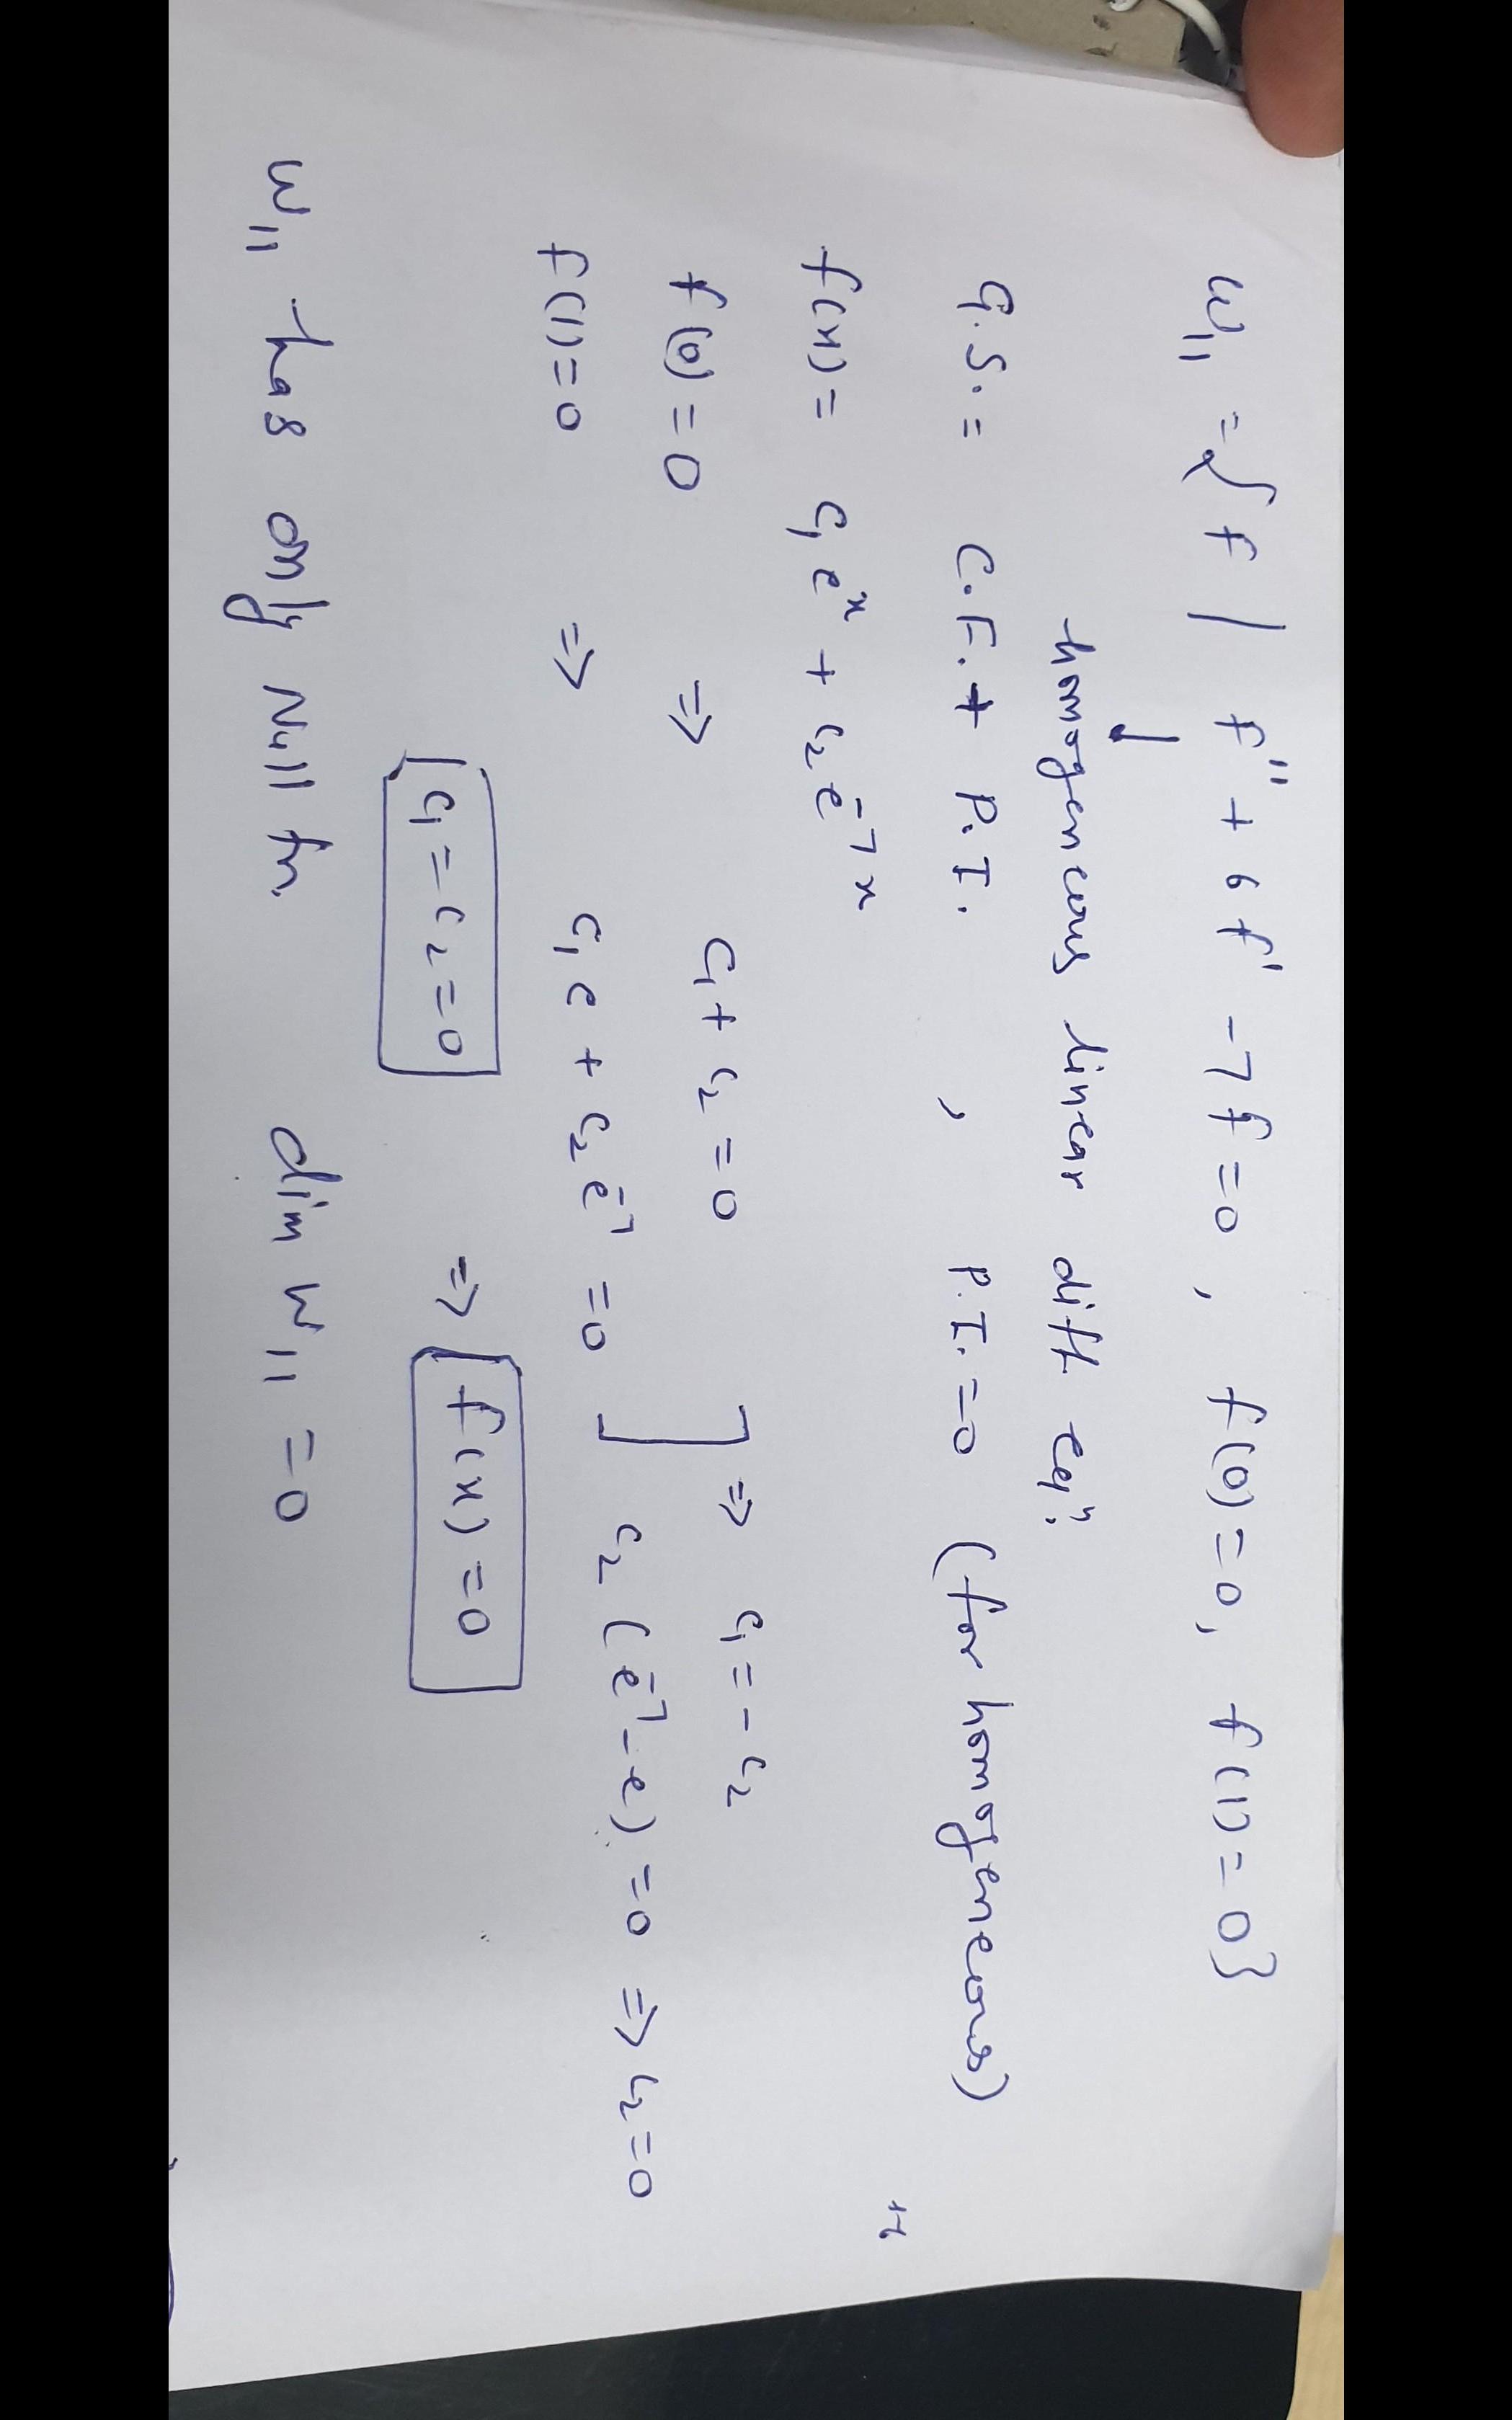 W₁₁ = { f | f'' + 6f' - 7f = 0 , f(0) = 0, f(1) = 0}
↓
homogeneous linear diff. eqⁿ.
G.S. = C.F. + P.I. , P.I. = 0 (for homogeneous)
f(x) = c₁eˣ + c₂e⁻⁷ˣ
f(0) = 0 ⇒ c₁ + c₂ = 0 ] ⇒ c₁ = - c₂
f(1) = 0 ⇒ c₁e + c₂e⁻⁷ = 0 c₂ (e⁻⁷ - e) = 0 ⇒ c₂ = 0
c₁ = c₂ = 0 ⇒ f(x) = 0
W₁₁ has only Null fn. dim W₁₁ = 0